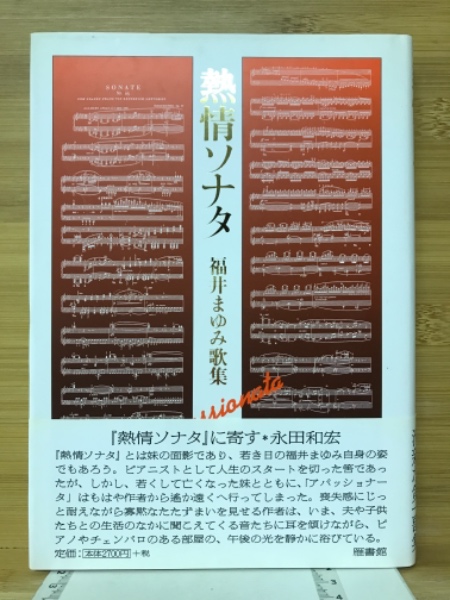 SONATE
熱情ソナタ
福井まゆみ歌集
ssionata
『熱情ソナタ』に寄す*永田和宏
『熱情ソナタ』とは妹の面影であり、若き日の福井まゆみ自身の姿
でもあろう。ピアニストとして人生のスタートを切った筈であっ
たが、しかし、若くして亡くなった妹とともに、「アパッショナー
タ」はもはや作者から遙か遠くへ行ってしまった。喪失感にじっ
と耐えながら寡黙なたたずまいを見せる作者は、いま、夫や子供
たちとの生活のなかに聞こえてくる音たちに耳を傾けながら、ピ
アノやチェンバロのある部屋の、午後の光を静かに浴びている。
定価:本体2700円+税
砂書館